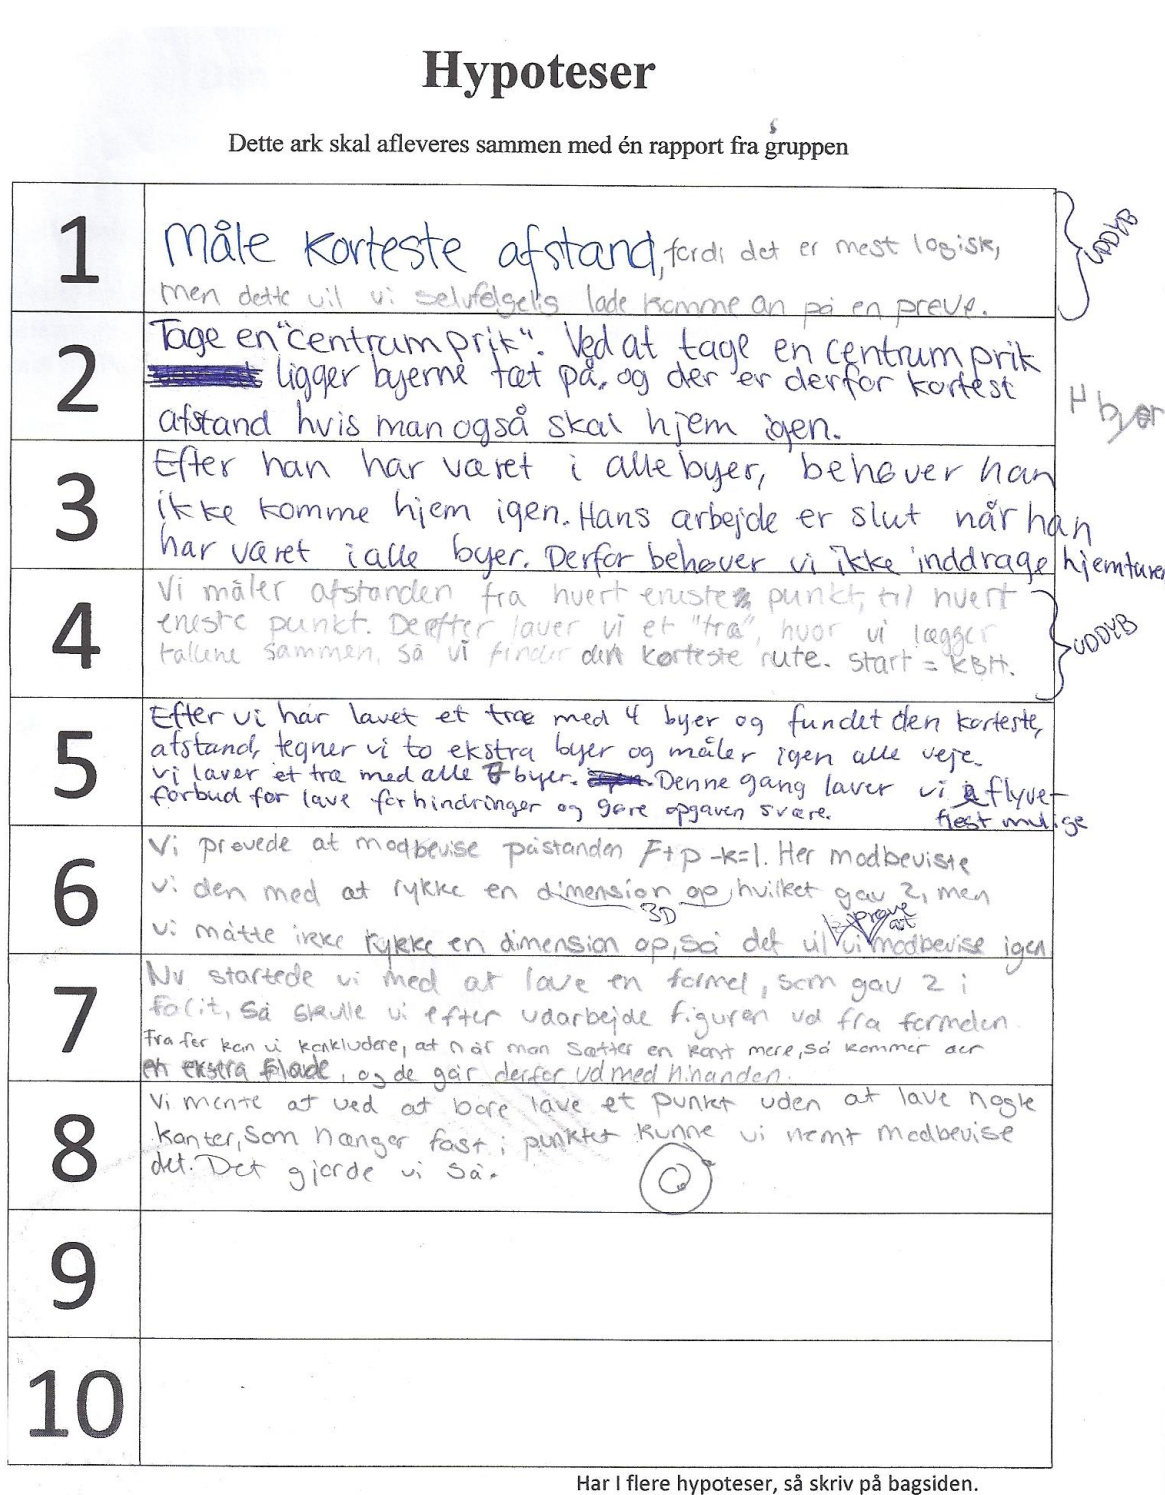 Hypoteser
Dette ark skal afleveres sammen med én rapport fra gruppen
1
Måle korteste afstand, fordi det er mest logisk,
men dette vil vi selvfølgelig lade komme an på en prøve.
UDDYB
2
Tage en "centrum prik". Ved at tage en centrum prik
ligger byerne tæt på, og der er derfor kortest
afstand hvis man også skal hjem igen.
4 byer
3
Efter han har været i alle byer, behøver han
ikke komme hjem igen. Hans arbejde er slut når han
har været i alle byer. Derfor behøver vi ikke inddrage hjemturen
4
Vi måler afstanden fra hvert eneste punkt, til hvert
eneste punkt. Derefter laver vi et "træ", hvor vi lægger
tallene sammen, så vi finder den korteste rute. start = KBH.
UDDYB
5
Efter vi har lavet et træ med 4 byer og fundet den korteste,
afstand, tegner vi to ekstra byer og måler igen alle veje.
Vi laver et træ med alle 6 byer. Denne gang laver vi flyve-
forbud for lave forhindringer og gøre opgaven svære.
flest mulige
6
Vi prøvede at modbevise påstanden F+p-k=1. Her modbeviste
vi den med at rykke en dimension op, hvilket gav 2, men
3D
prøve at
vi måtte ikke rykke en dimension op, så det vil vi modbevise igen
7
Nu startede vi med at lave en formel, som gav 2 i
facit, så skulle vi efter udarbejde figuren ud fra formlen.
Fra før kan vi konkludere, at når man sætter en kant mere, så kommer der
en ekstra flade, og de går derfor ud med hinanden.
8
Vi mente at ved at bare lave et punkt uden at lave nogle
kanter, som hænger fast i punktet kunne vi nemt modbevise
det. Det gjorde vi så.
9
10
Har I flere hypoteser, så skriv på bagsiden.